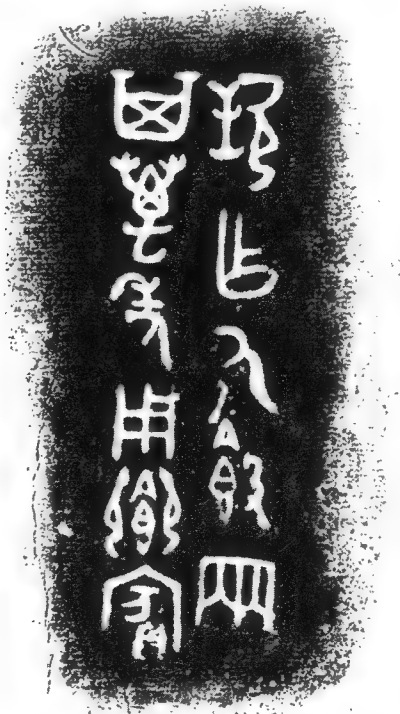 乍氒𣪘兩
其萬年用鄉賓